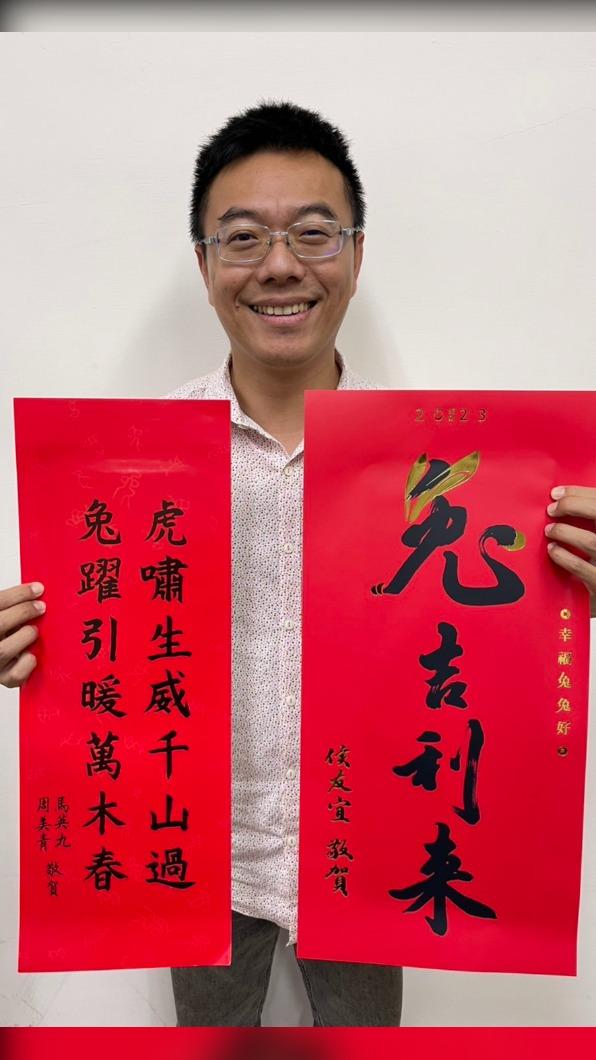 虎嘯生威千山過
兔躍引暖萬木春
馬英九
周美青 敬賀
2023
兔吉利来
幸福兔兔好
侯友宜 敬賀